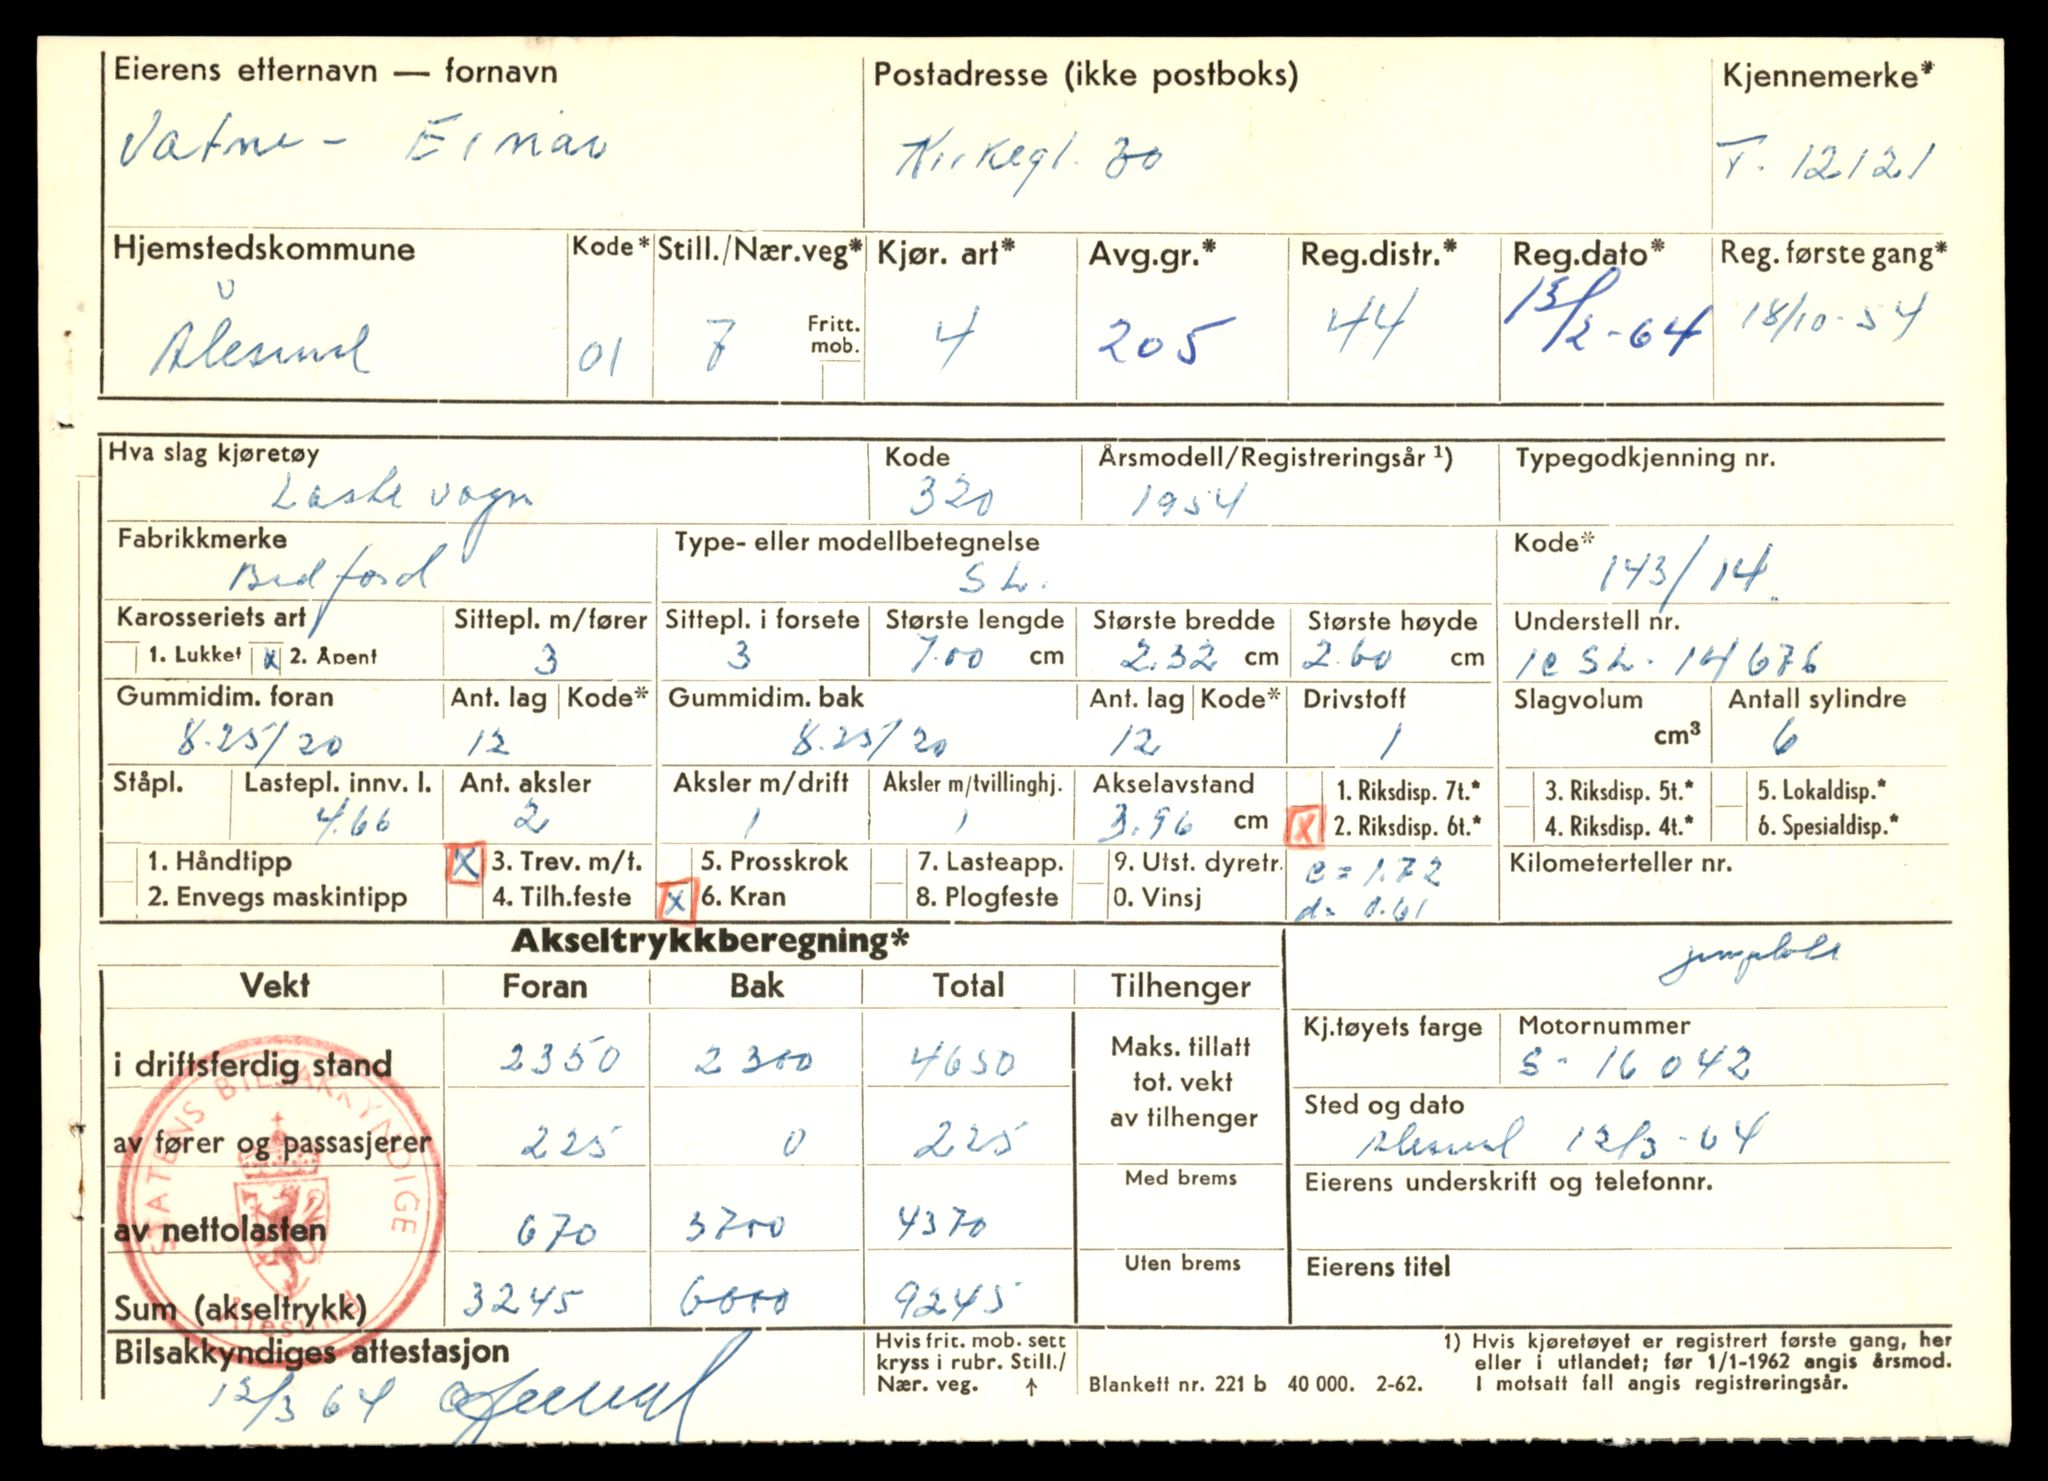 Eierens etternavn — fornavn Postadresse (ikke postboks) Kjennemerke*
Vatne - Einar Kirkegt. 30 T. 12121
Hjemstedskommune Kode* Still./Nær.veg* Kjør. art* Avg.gr.* Reg.distr.* Reg.dato* Reg. første gang*
Ålesund 01 7 Fritt. mob. 4 205 44 13/3-64 18/10-54
Hva slag kjøretøy Kode Årsmodell/Registreringsår ¹) Typegodkjenning nr.
Lastevogn 320 1954
Fabrikkmerke Type- eller modellbetegnelse Kode*
Bedford SL. 143/14.
Karosseriets art Sittepl. m/fører Sittepl. i forsete Største lengde Største bredde Største høyde Understell nr.
1. Lukket x 2. Åpent 3 3 7.00 cm 2.32 cm 2.60 cm 1e SL. 14676
Gummidim. foran Ant. lag Kode* Gummidim. bak Ant. lag Kode* Drivstoff Slagvolum Antall sylindre
8.25/20 12 8.25/20 12 1 cm³ 6
Ståpl. Lastepl. innv. l. Ant. aksler Aksler m/drift Aksler m/tvillinghj. Akselavstand 1. Riksdisp. 7t.* 3. Riksdisp. 5t.* 5. Lokaldisp.*
4.66 2 1 1 3.96 cm x 2. Riksdisp. 6t.* 4. Riksdisp. 4t.* 6. Spesialdisp.*
1. Håndtipp x 3. Trev. m/t. 5. Prosskrok 7. Lasteapp. 9. Utst. dyretr. e = 1.72 Kilometerteller nr.
2. Envegs maskintipp 4. Tilh.feste x 6. Kran 8. Plogfeste 0. Vinsj d = 0.61
Akseltrykkberegning*
Vekt Foran Bak Total Tilhenger
i driftsferdig stand 2350 2300 4650
Maks. tillatt
tot. vekt
av tilhenger
Kj.tøyets farge Motornummer
S- 16042
av fører og passasjerer 225 0 225
Sted og dato
Ålesund 12/3-64
Med brems Eierens underskrift og telefonnr.
av nettolasten 670 3700 4370
Uten brems Eierens titel
Sum (akseltrykk) 3245 6000 9245
STATENS BILSAKKYNDIGE
Ålesund
Bilsakkyndiges attestasjon
12/3 64
Hvis frit. mob. sett
kryss i rubr. Still./
Nær. veg. ↑
Blankett nr. 221 b 40 000. 2-62.
1) Hvis kjøretøyet er registrert første gang, her
eller i utlandet; før 1/1-1962 angis årsmod.
I motsatt fall angis registreringsår.